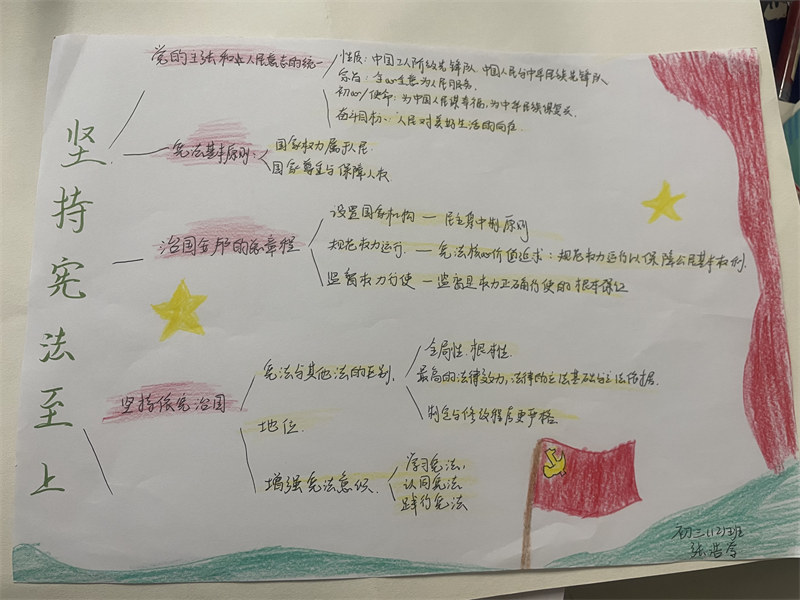 坚持宪法至上
党的主张和人民意志的统一
性质：中国工人阶级先锋队 中国人民和中华民族先锋队
宗旨：全心全意为人民服务
初心/使命：为中国人民谋幸福，为中华民族谋复兴
奋斗目标：人民对美好生活的向往
宪法基本原则：
国家权力属于人民
国家尊重与保障人权
治国安邦的总章程
设置国家机构 — 民主集中制原则
规范权力运行 — 宪法核心价值追求：规范权力运行以保障公民基本权利
监督权力行使 — 监督是权力正确行使的根本保证
坚持依宪治国
宪法与其他法的区别
全局性 根本性
最高的法律效力，法律的立法基础与立法依据
制定与修改程序更严格
地位
增强宪法意识
学习宪法，
认同宪法
践行宪法
初二(12)班
张浩